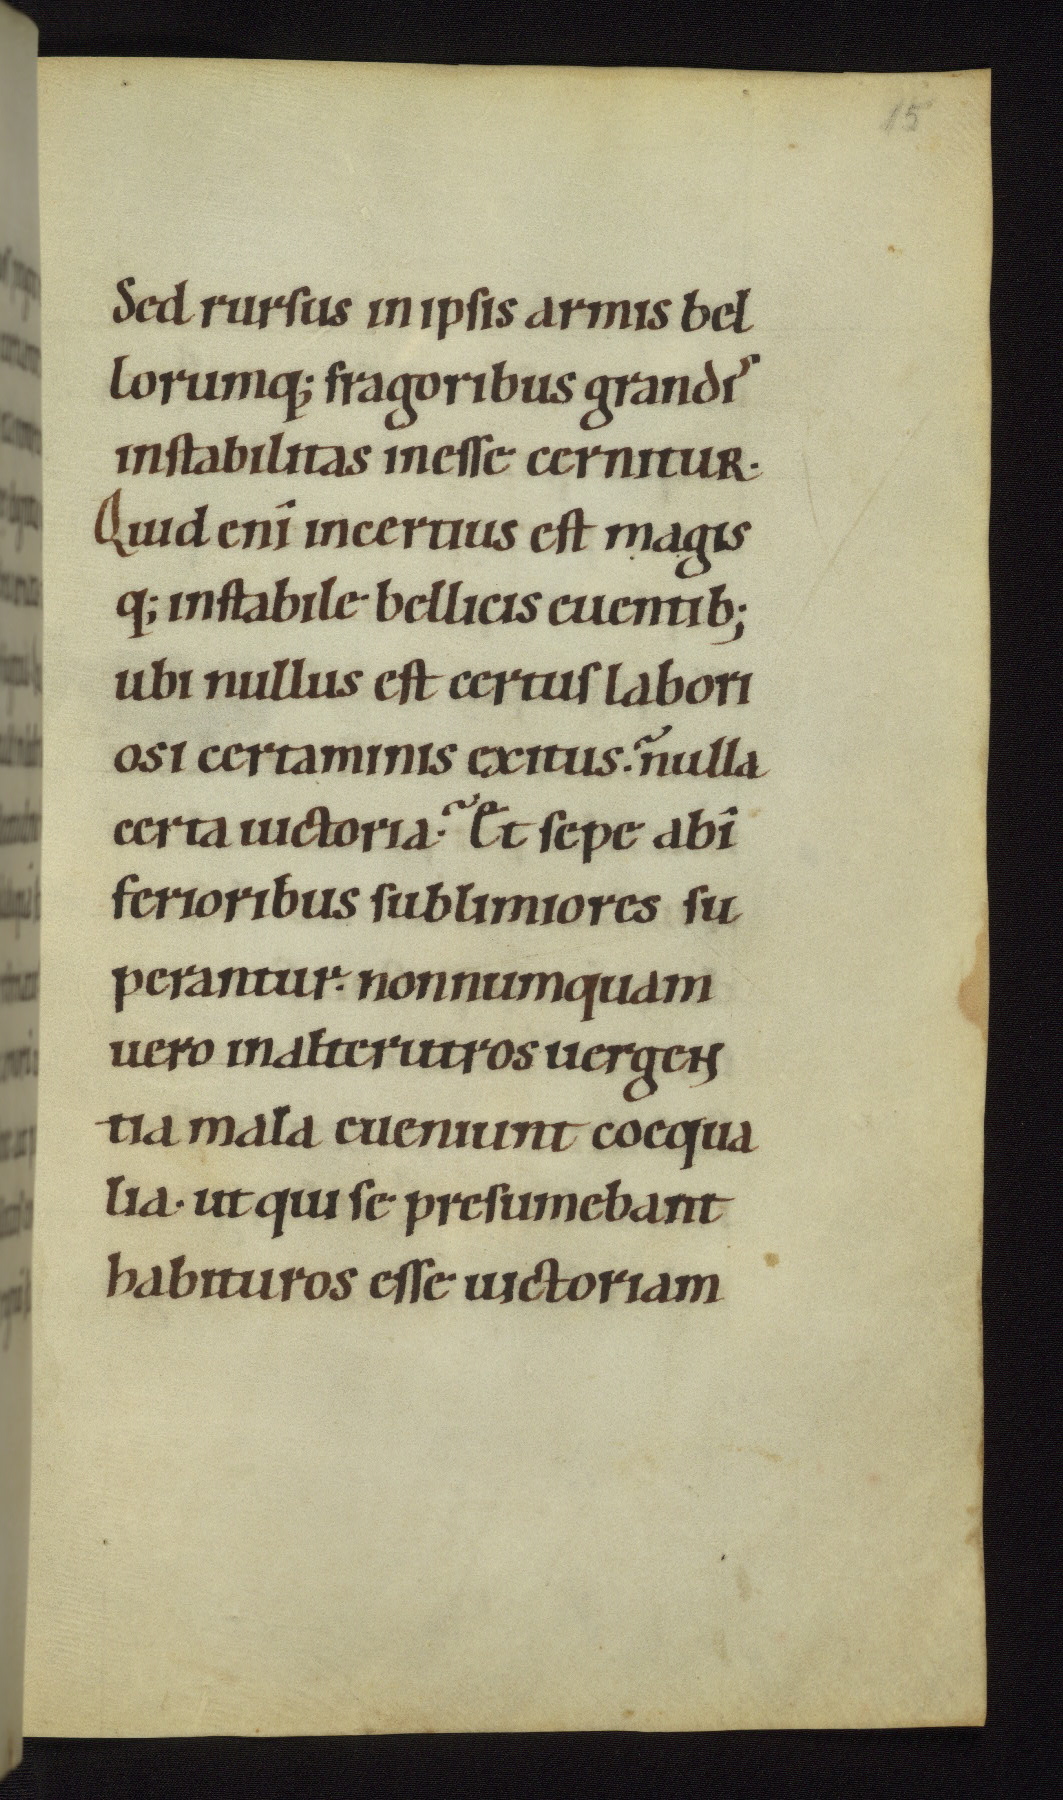 15
Sed rursus in ipsis armis bel
lorumq; fragoribus grandis
instabilitas inesse cernitur.
Quid enī incertius est magis
q; instabile bellicis euentib;
ubi nullus est certus labori
osi certaminis exitus. nulla
certa uictoria. Et sepe abī
ferioribus sublimiores su
perantur. nonnumquam
uero in alterutros uergen
tia mala eueniunt coequa
lia. ut qui se presumebant
habituros esse uictoriam